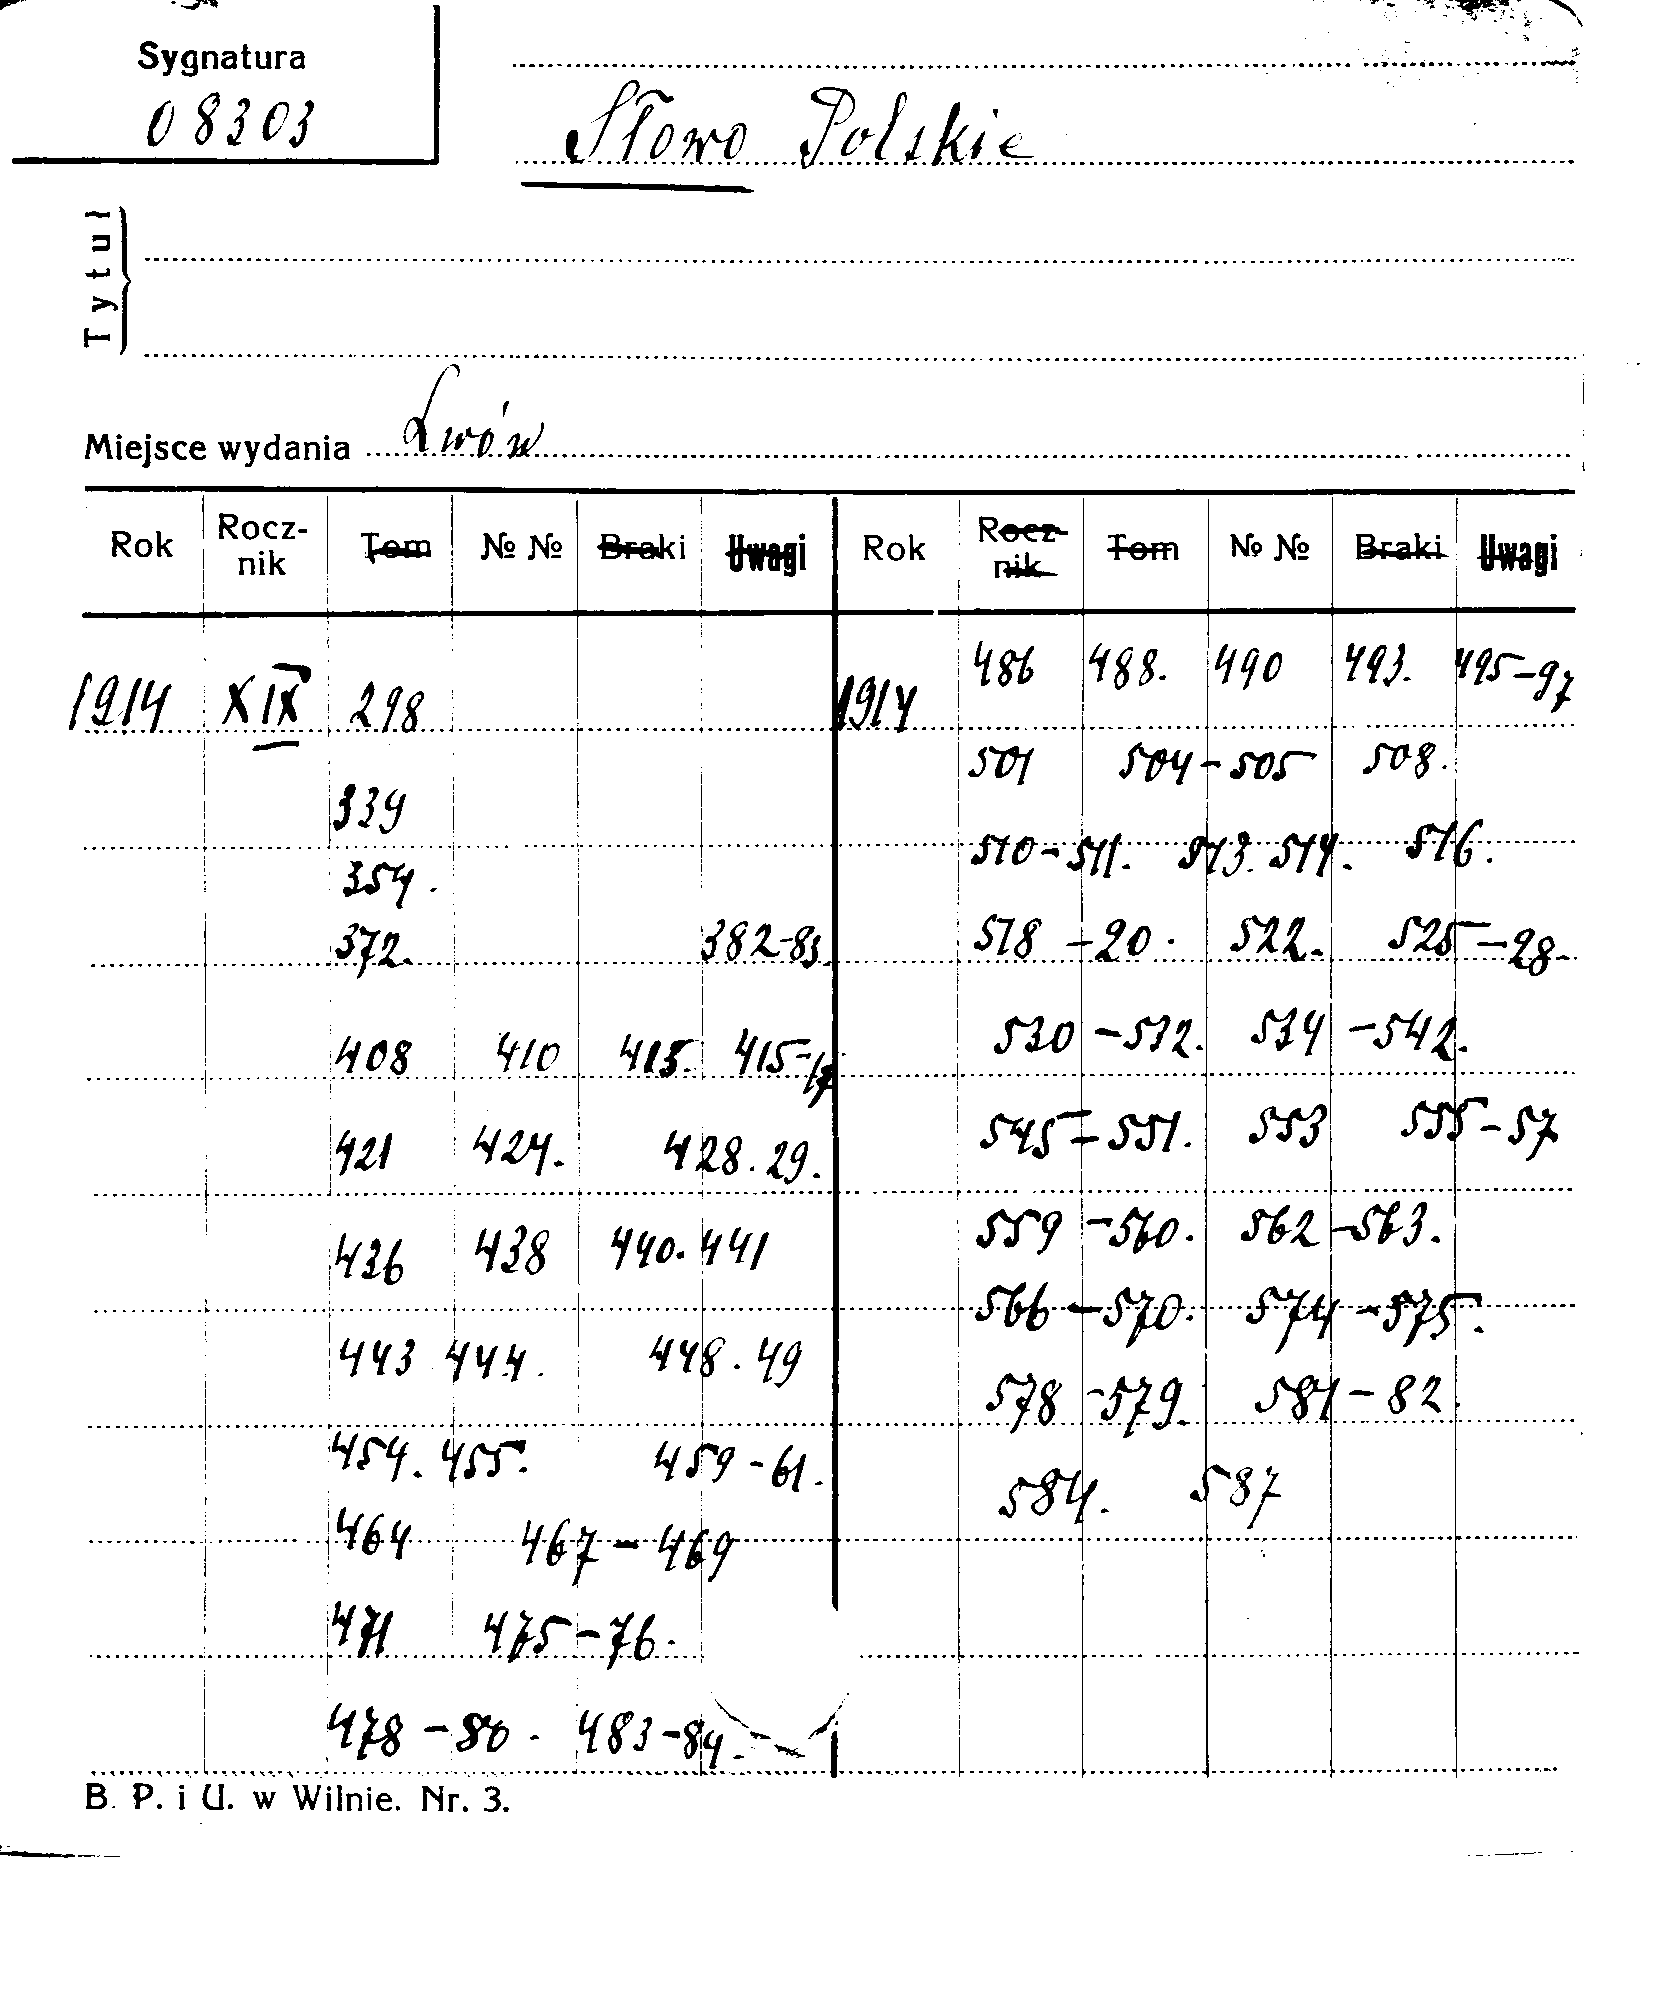 Sygnatura
08303
Słowo Polskie
Tytuł
Miejsce wydania Lwów
Rok Rocz-nik Tom № № Braki Uwagi Rok Rocz-nik Tom № № Braki Uwagi
1914 XIX 298
339
354.
372. 382-83.
408 410 413. 415-17
421 424. 428. 29.
436 438 440. 441
443 444. 448. 49
454. 455. 459-61.
464 467-469
471 475-76.
478-80. 483-84.
1914 486 488. 490 493. 495-97
501 504-505 508.
510-511. 513. 514. 516.
518-20. 522. 525-28.
530-532. 534-542.
545-551. 553 555-57
559-560. 562-563.
566-570. 574-575.
578-579. 581-82.
584. 587
B. P. i U. w Wilnie. Nr. 3.